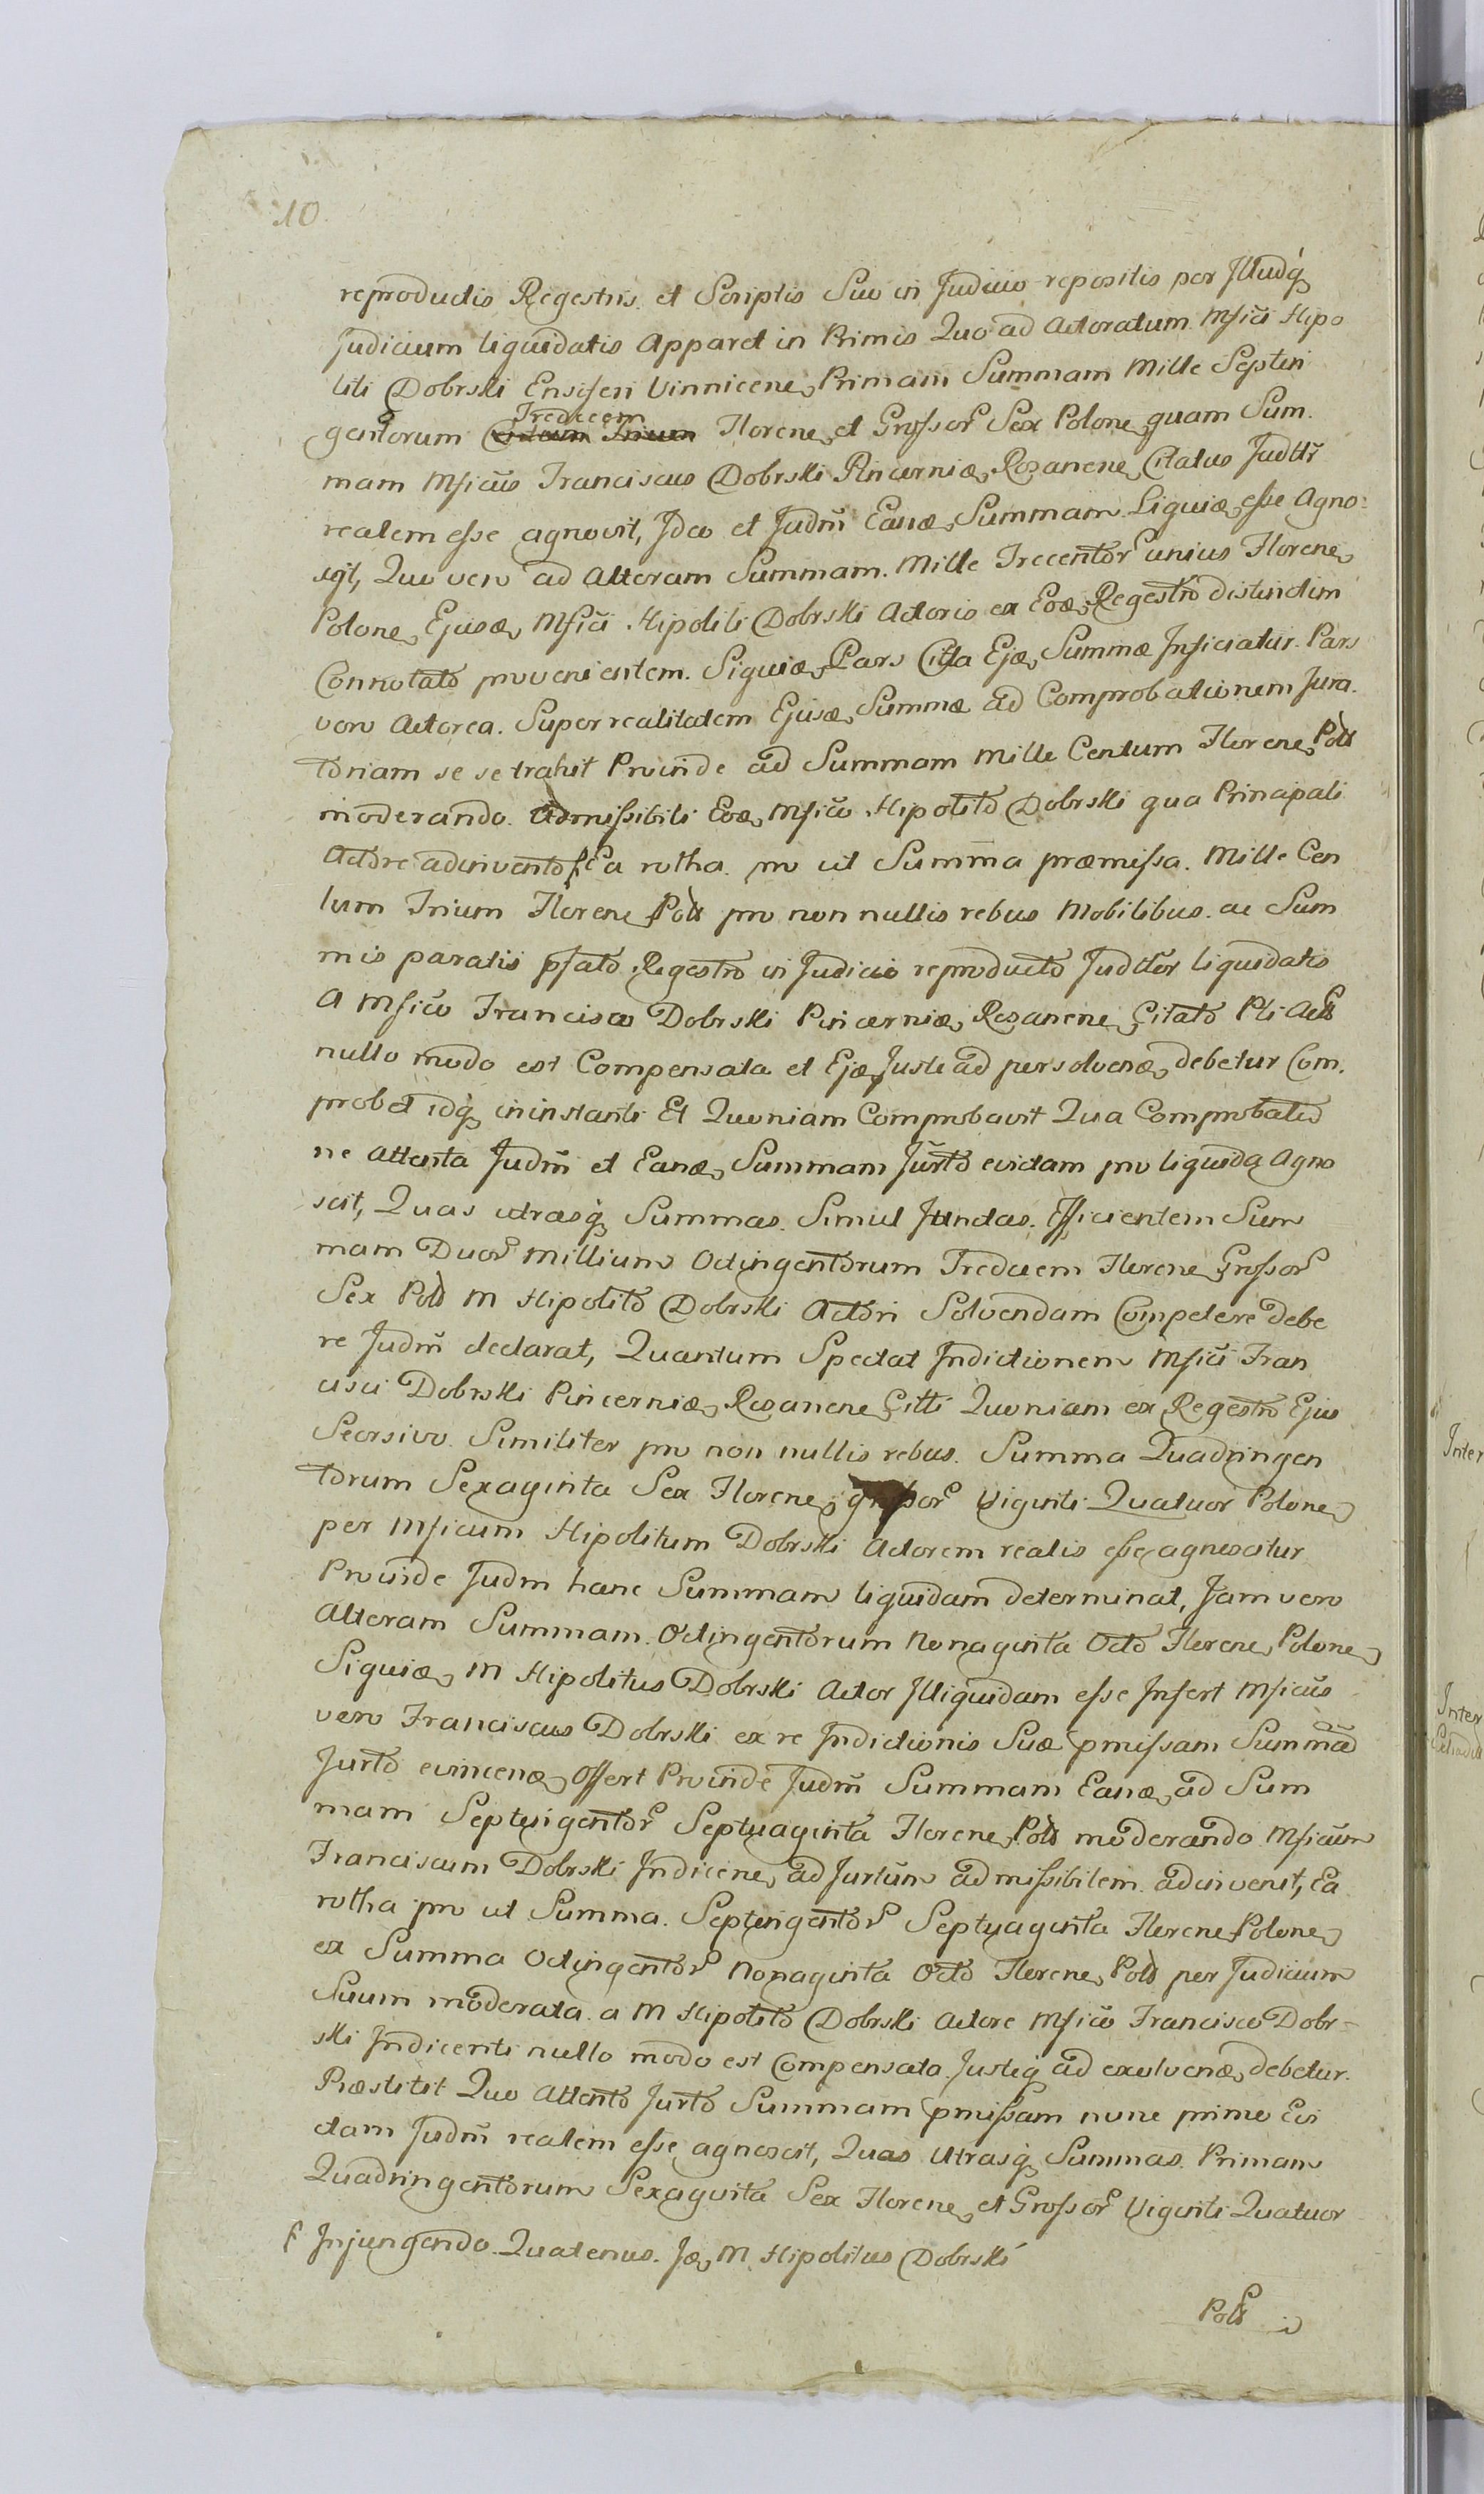 10.
reproductis Regestris et Scriptis Suo in Judicio repositis per Illudq
Judicium liquidatis Apparet in Primis Quo ad Actoratum Mfici Hipo
liti Dobrski Ensiferi Vinnicene, Primam Summam Mille Septin
Tredecem
gentorum Florene, et Grossor Sex Polone, quam Sum.
mam Mficus Franciscus Dobrski Pincerniæ, Rozanene, Citatus Juditr
realem esse agnovit, Ideo et Judm Eanæ, Summam Liquiæ, esse Agno:
scit, Quo vero ad Alteram Summam. Mille Trecentor unius Florene,
Polone, Ejusæ, Mfici Hipoliti Dobrski Actoris ex Eoæ, Regestro distinctim
Connotato provenientem. Siquiæ, Pars Citta Ejæ, Summæ Inficiatur. Pars
vero Actorea. Super realitatem Ejusæ, Summæ ad Comprobationem Jura.
toriam se se trahit Proinde ad Summam Mille Centum Florene, Polls
moderando. Admissibili Eoæ, Mfico Hipolito Dobrski qua Principali
Actore adinvento f Ea rotha pro ut Summa præmissa. Mille Cen
tum Trium Florene, Polls pro non nullis rebus Mobilibus. ac Sum
mis paratis pfato Regestro in Judicio reproducto Juditer liquidatis
A Mfico Francisco Dobrski Pincerniæ, Rozanene, Citato Pli Acts
nullo modo est Compensata et Ejæ, Juste ad persolvenæ, debetur Com.
probet idq ininstanti Et Quoniam Comprobavit Qua Comprobatio
ne Attenta Judm et Eanæ, Summam Jurto evictam pro liquida Agno
scit, Quas utrasq Summas. Simul Junctas. Efficientem Sum
mam Duor Millium Octingentorum Tredecem Florene, Grossor
Sex Polls M Hipolito Dobrski Actori Solvendam Competere debe
re Judm declarat, Quantum Spectat Indictionem Mfici Fran
cisci Dobrski Pincerniæ, Rozanene, Citti Quoniam ex Regestro Ejus
Seorsivo. Similiter pro non nullis rebus. Summa Quadringen
torum Sexaginta Sex Florene, grossor Viginti Quatuor Polone,
per Mficum Hipolitum Dobrski Actorem realis esse agnoscitur
Proinde Judm hanc Summam liquidam determinat, Jam vero
Alteram Summam. Octingentorum Nonaginta Octo Florene, Polone,
Siquiæ, M Hipolitus Dobrski Actor Illiquidam esse Infert Mficus
vero Franciscus Dobrski ex re Indictionis Suæ pmissam Summam
Jurto evincenæ, Offert Proinde Judm Summam Eanæ, ad Sum
mam Septuigentor Septuaginta Florene, Polls moderando Mficum
Franciscum Dobrski Indicene, ad Jurtum admissibilem. adinvenit, Ea
rotha pro ut Summa. Septingentor Septuaginta Florene, Polone,
ex Summa Octingentor Nonaginta Octo Florene, Polls per Judicium
Suum moderata. a M Hipolito Dobrski Actore Mfico Francisco Dobr-
ski Indicenti nullo modo est Compensata. Justeq ad exolvenæ, debetur.
Præstitit Quo Attento Jurto Summam pmissam nunc prime Evi
ctam Judm realem esse agnoscit, Quas Utrasq Summas. Primam
Quadringentorum Sexaginta Sex Florene, et Grossor Viginti Quatuor
f Injungendo Quatenus. Jæ, M. Hipolitus Dobrski
Polls
Inter
Inter